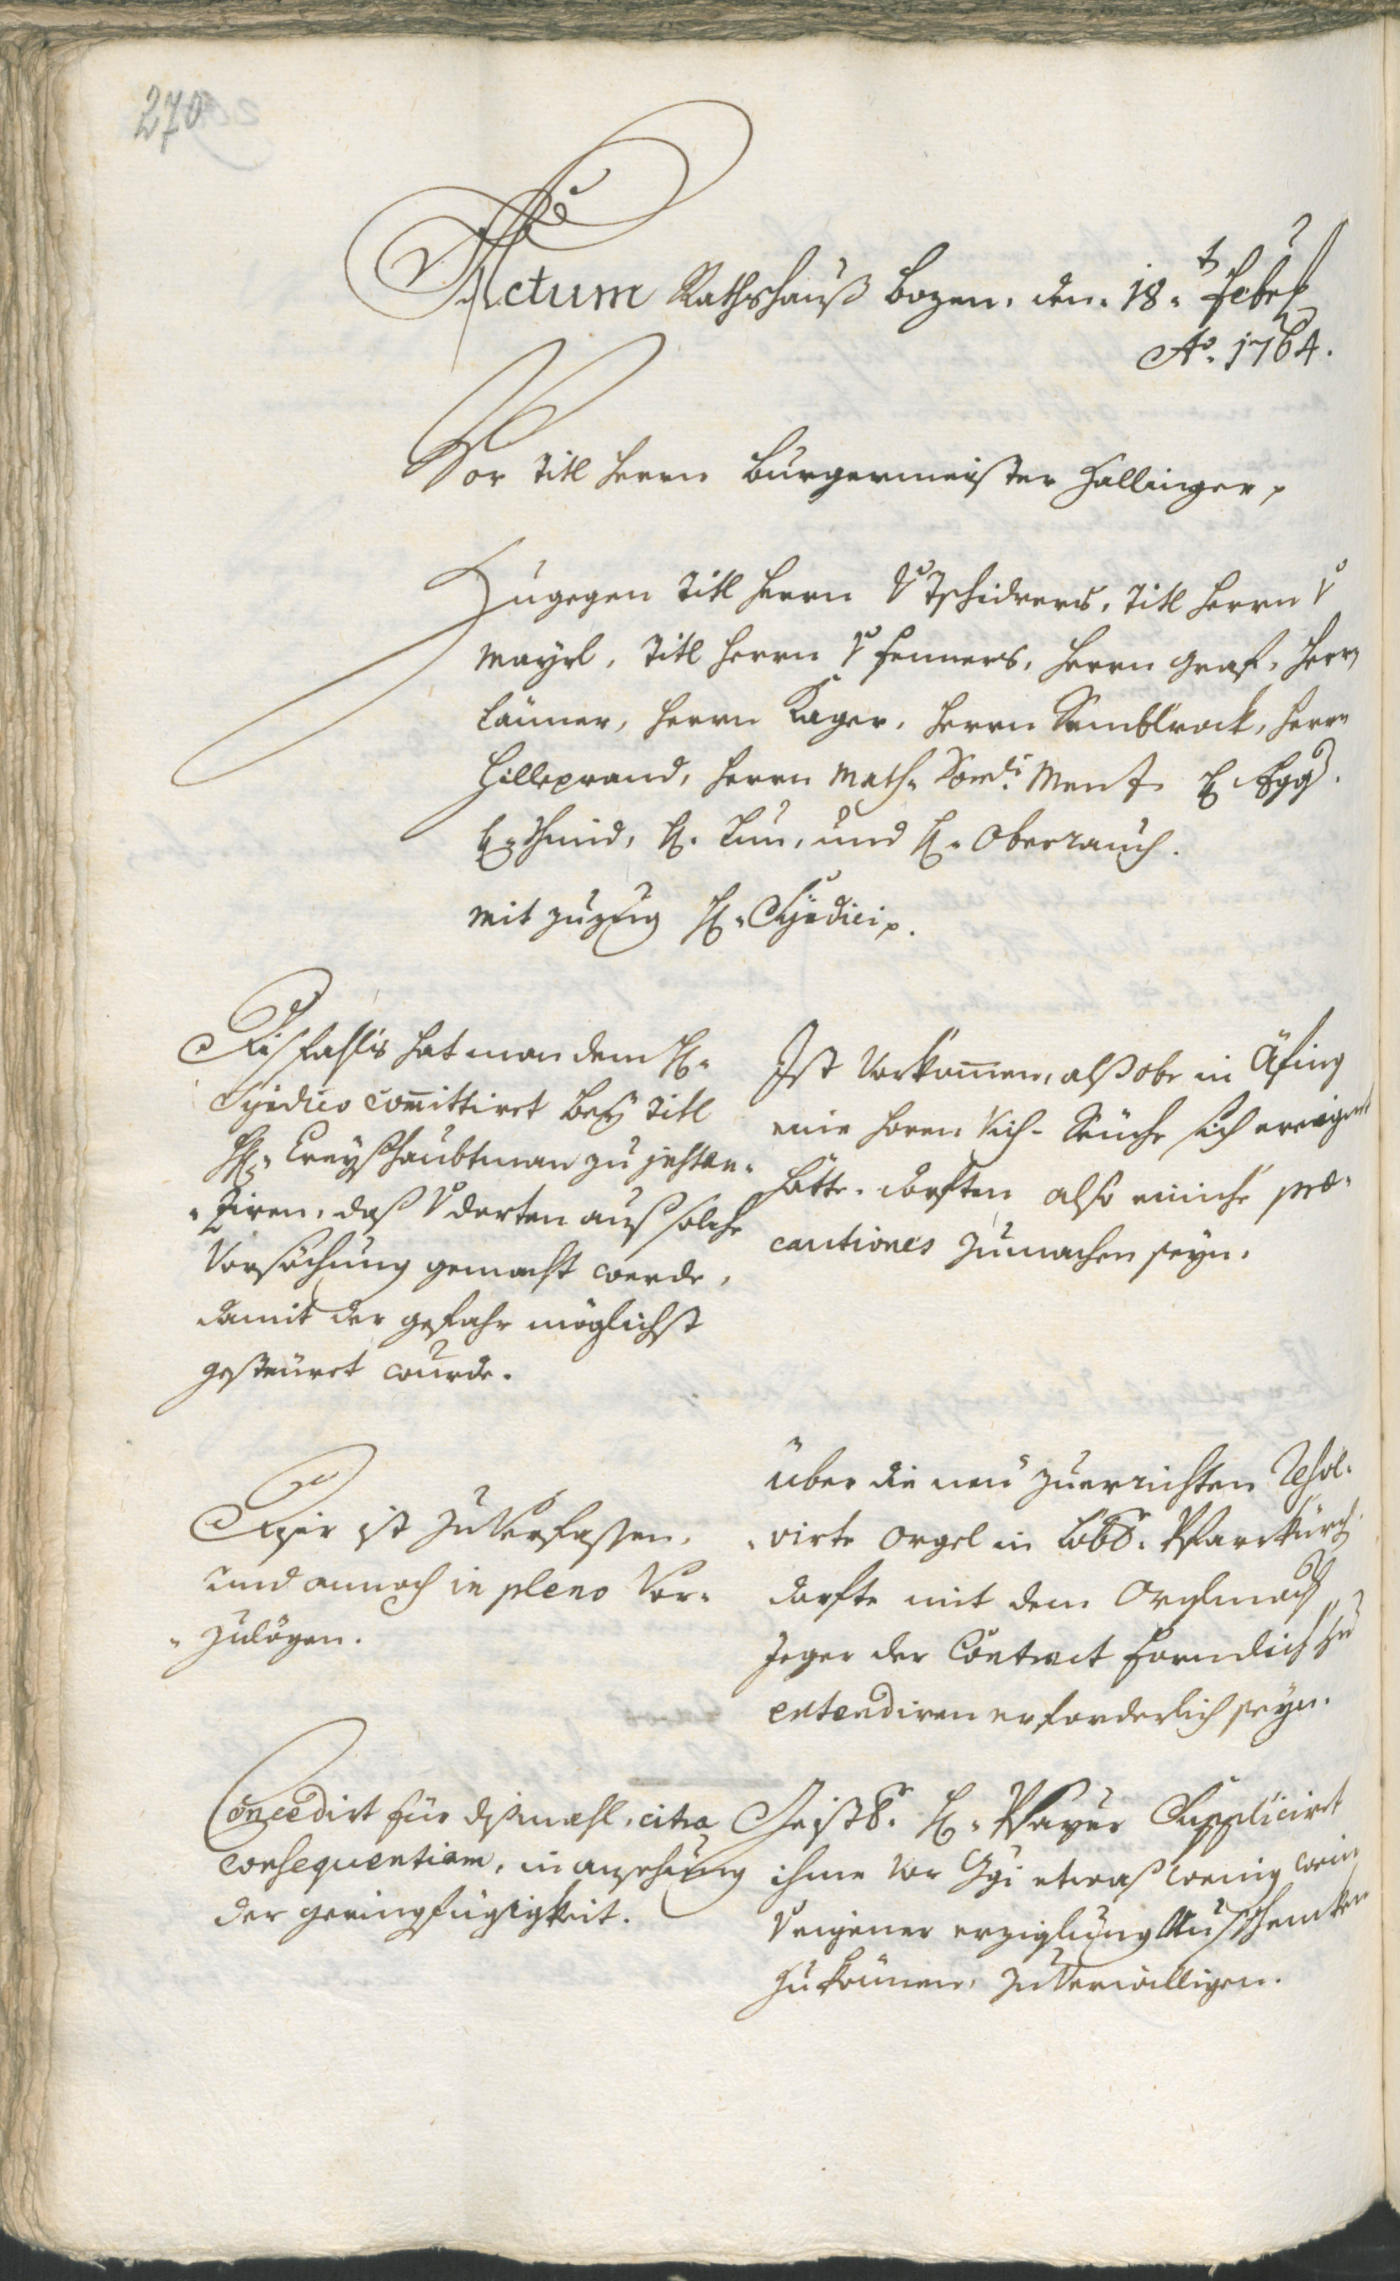 270
Actum Rathshauß Bozen, den 18t Febr
Ao. 1764.
Vor Titl Herrn Burgermeister Hallinger,
Zugegen Titl Herrn v Tschiderer, Titl Herrn v
Mayrl, Titl Herrn v Fenners, Herrn Graf, Herrn
Länner, Herrn Kager, Herrn Semblrock, Herrn
Hilleprand, Herrn Math. Menz H. Egg
H. Schmid, H. Lun, und H. Oberrauch.
mit zuzug H. Syndici.
Disfahls hat man dem H.
Syndico committiret bey Titl
H. Creyßhaubtman zu
daß v dorten auß solche
Vorsöchung gemacht werde,
damit der gefahr möglichst
gesteüret wurde.
Ist vorkommen, alß obe in Äfing
eine Horn Vich-Seüche sich ereigent
hätte. dorften also einiche præ-
cautiones zumachen seyn.
Dieser ist zuverfassen,
und annoch in pleno vor-
zulögen.
Über die neü zuerrichten Resol-
virte Orgel in Lobr. Pfarrkürch
dorfte mit dem Orglmach
Jeger der Contract formdlich zu
extendiren erforderlich seyn.
Concedirt für dißmahl, citra
consequentiam, in ansehung
der geringfügigkeit.
Geistl. H. Payer Supplicirt
ihme vor etwaß wenig wein
v eigener erziglung Ausschenken
zu können, zuverwilligen.